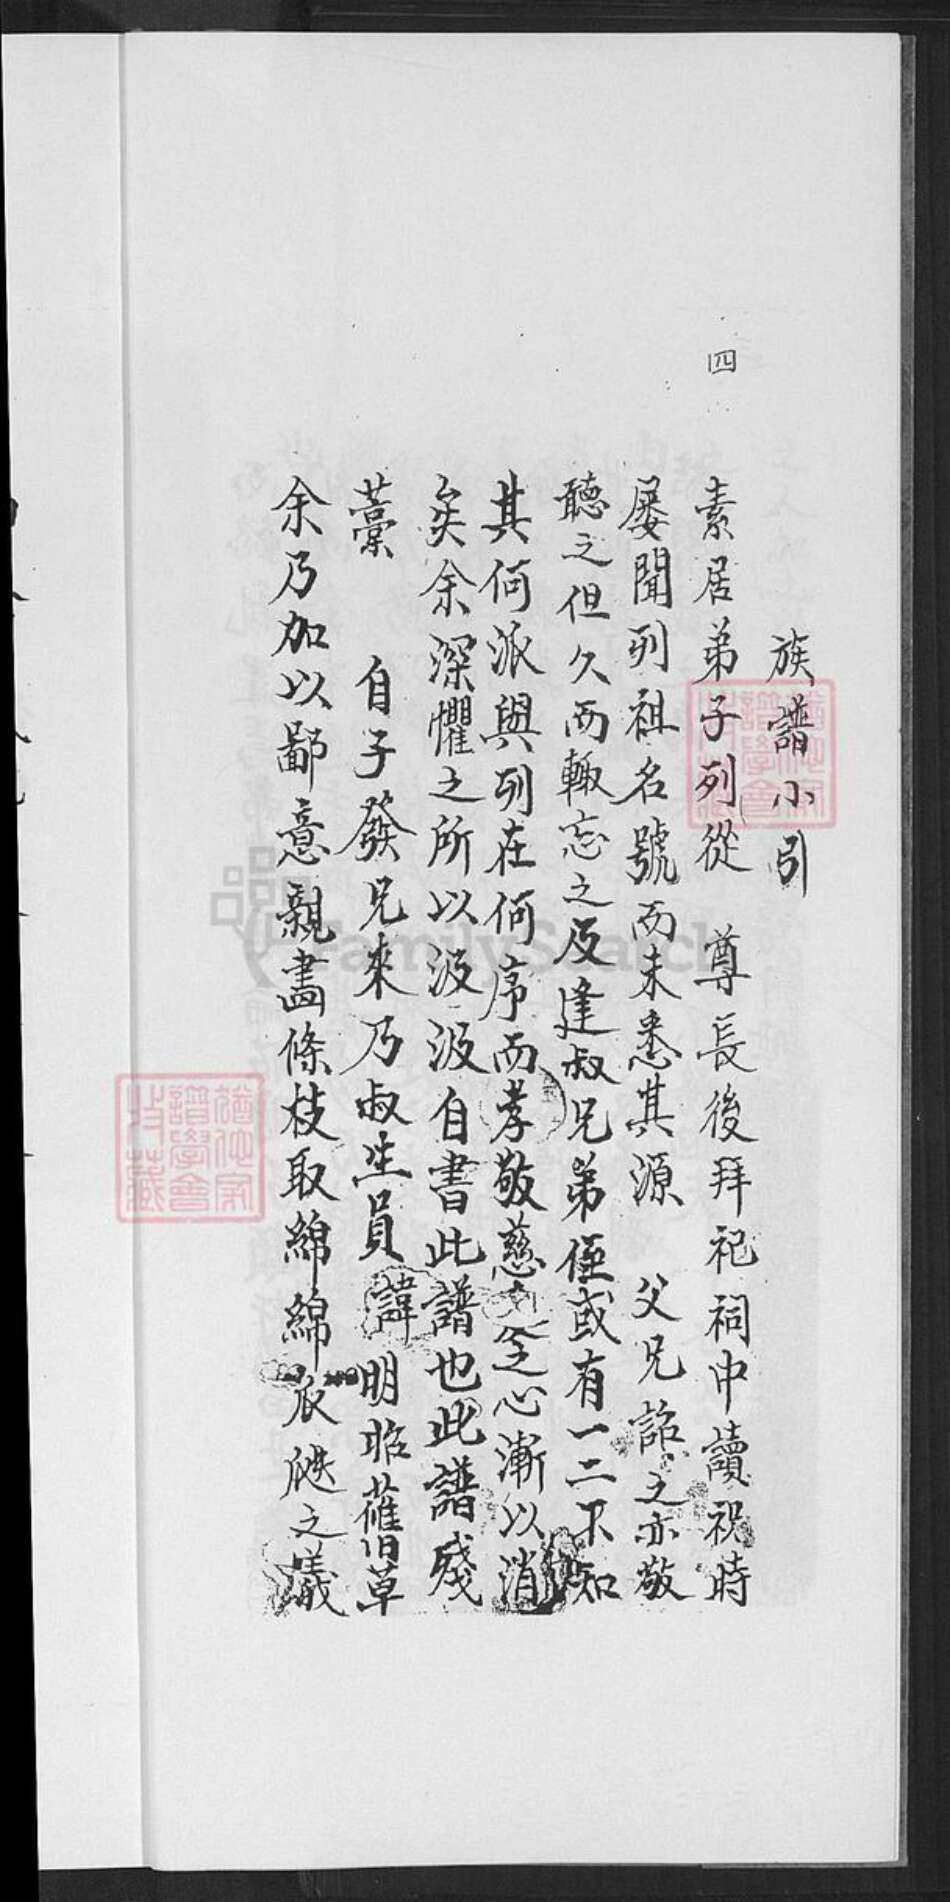 四
族譜小引
素居弟子列從 尊長後拜祀祠中讀祝時
屡聞列祖名號而未悉其源 父兄詔之亦敬
聽之但久而輙忘之及逢叔兄弟侄或有一二不知
其何派與列在何序而孝敬慈 之心漸以消
矣余深懼之所以汲汲自書此譜也此譜殘
藁 自子發兄來乃叔生員諱明昭舊草
余乃加以鄙意親畫條枝取綿綿 瓞之義
FamilySearch